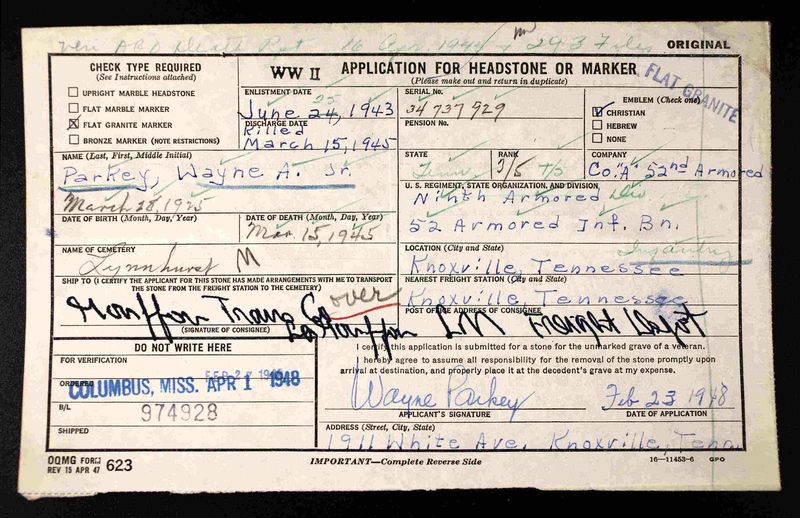 16 1944 293 Files
ORIGINAL
CHECK TYPE REQUIRED
(See Instructions attached)
UPRIGHT MARBLE HEADSTONE
FLAT MARBLE MARKER
FLAT GRANITE MARKER
BRONZE MARKER (NOTE RESTRICTIONS)
WW II APPLICATION FOR HEADSTONE OR MARKER
(Please make out and return in duplicate)
FLAT GRANITE
ENLISTMENT DATE
25
June 24, 1943
DISCHARGE DATE
Killed
March 15, 1945
SERIAL No.
34 737 929
PENSION No.
EMBLEM (Check one)
CHRISTIAN
HEBREW
NONE
NAME (Last, First, Middle Initial)
Parkey, Wayne A. Jr.
STATE
Tenn
RANK
T/5 T/5
COMPANY
Co. "A" 52nd Armored
March 28, 1925
DATE OF BIRTH (Month, Day, Year)
DATE OF DEATH (Month, Day, Year)
Mar. 15, 1945
U. S. REGIMENT, STATE ORGANIZATION, AND DIVISION
Ninth Armored Div
52 Armored Inf. Bn.
Infantry
NAME OF CEMETERY
Lynnhurst M
LOCATION (City and State)
Knoxville, Tennessee
SHIP TO (I CERTIFY THE APPLICANT FOR THIS STONE HAS MADE ARRANGEMENTS WITH ME TO TRANSPORT
THE STONE FROM THE FREIGHT STATION TO THE CEMETERY)
NEAREST FREIGHT STATION (City and State)
Knoxville, Tennessee
over
(SIGNATURE OF CONSIGNEE)
POST OFFICE ADDRESS OF CONSIGNEE
DO NOT WRITE HERE
FOR VERIFICATION
ORDERED
COLUMBUS, MISS. APR 1 1948
B/L
974928
SHIPPED
I certify this application is submitted for a stone for the unmarked grave of a veteran.
I hereby agree to assume all responsibility for the removal of the stone promptly upon
arrival at destination, and properly place it at the decedent's grave at my expense.
Wayne Parkey Feb 23 1948
APPLICANT'S SIGNATURE DATE OF APPLICATION
ADDRESS (Street, City, State)
1911 White Ave. Knoxville, Tenn.
OQMG FORM
REV 15 APR 47 623
IMPORTANT—Complete Reverse Side
16—11453-6 GPO